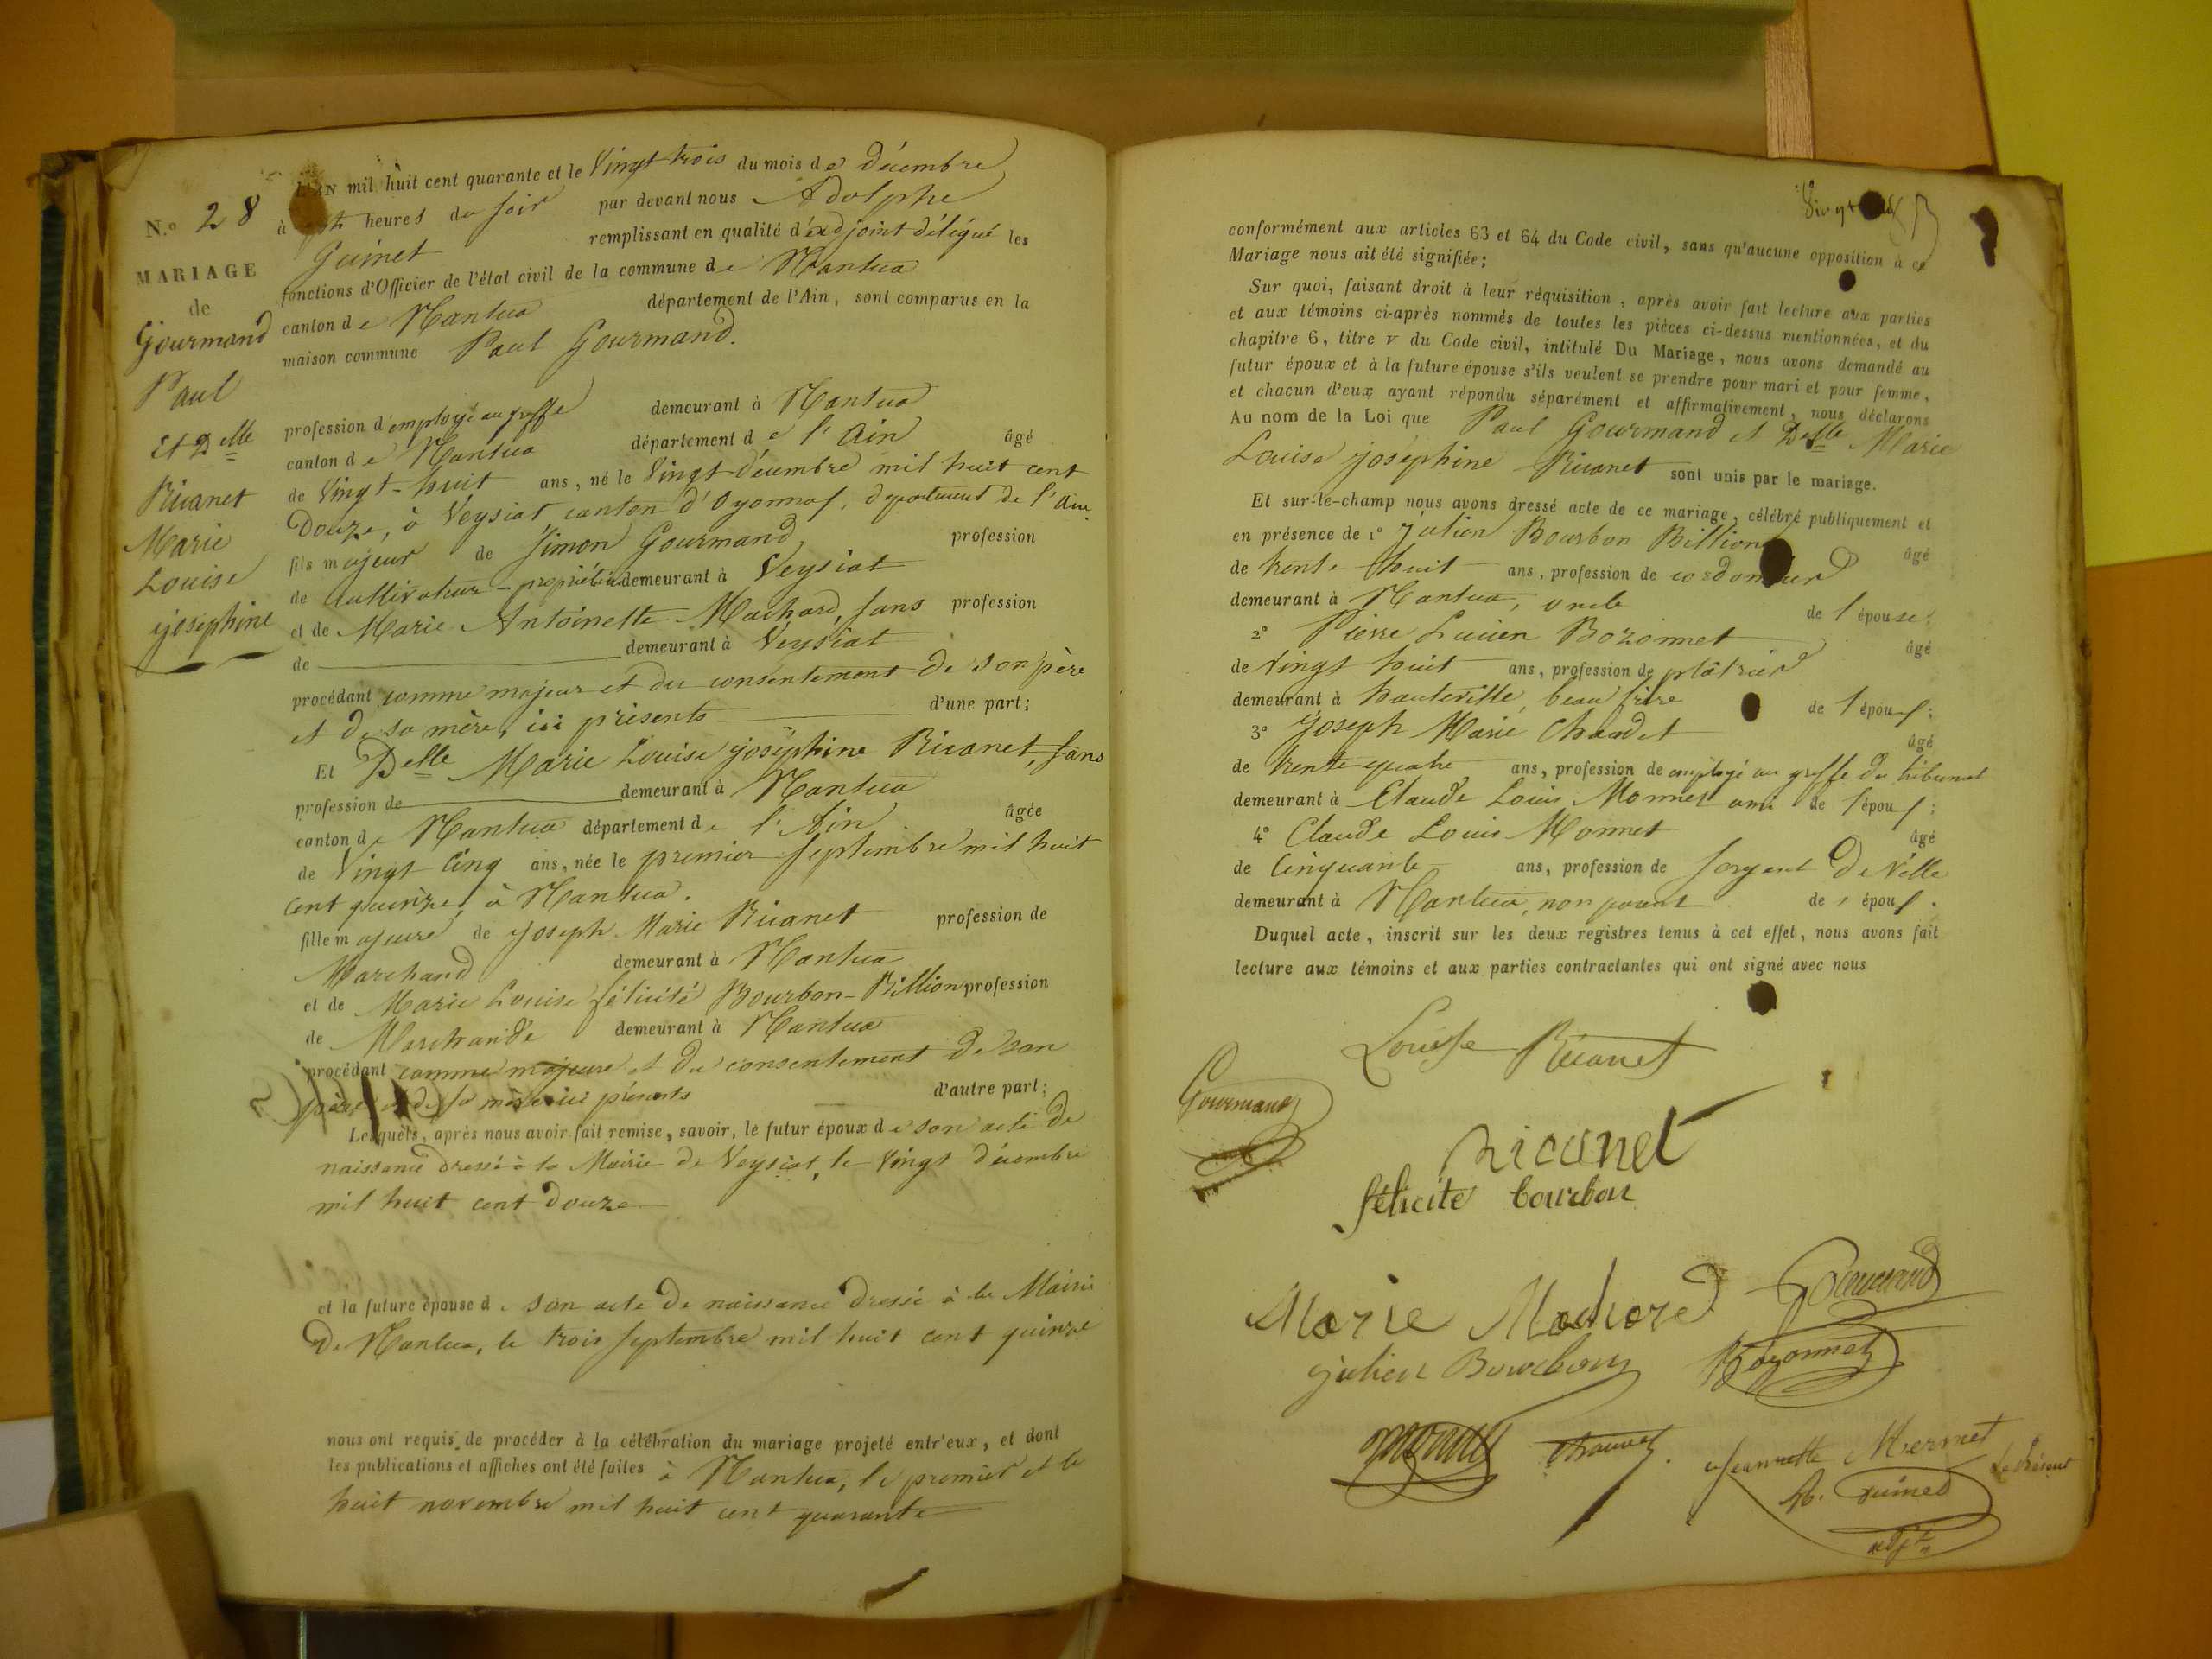 N.º 28
MARIAGE
de
Gourmand
Paul
Et Delle
Ricanet
Marie
Louise
joséphine
L'AN mil huit cent quarante et le Vingt trois du mois de décembre
à heures du soir par devant nous Adolphe
Guinet remplissant en qualité d'adjoint délégué les
fonctions d'Officier de l'état civil de la commune de Nantua
canton de Nantua département de l'Ain, sont comparus en la
maison commune Paul Gourmand.
profession d'employé au greffe demeurant à Nantua
canton de Nantua département de l'Ain âgé
de Vingt-huit ans, né le Vingt décembre mil huit cent
Douze, à Veysiat canton d'Oyonnax, département de l'Ain
fils majeur de Simon Gourmand profession
de cultivateur-propriétaire demeurant à Veysiat
et de Marie Antoinette Machard, sans profession
de demeurant à Veysiat
procédant comme majeur et du consentement de son père
et de sa mère, ici présents d'une part;
Et Delle Marie Louise joséphine Ricanet, sans
profession de demeurant à Nantua
canton de Nantua département de l'Ain âgée
de Vingt Cinq ans, née le premier septembre mil huit
cent quinze, à Nantua.
fille majeure de joseph Marie Ricanet profession de
Marchand demeurant à Nantua
et de Marie Louise félicité Bourbon-Billion profession
de Marchande demeurant à Nantua
procédant comme majeure et du consentement de son
père et de sa mère ici présents d'autre part;
Lesquels, après nous avoir fait remise, savoir, le futur époux de son acte de
naissance dressé à la Mairie de Veysiat, le Vingt décembre
mil huit cent douze
et la future épouse de son acte de naissance dressé à la Mairie
De Nantua, le trois septembre mil huit cent quinze
nous ont requis de procéder à la célébration du mariage projeté entr'eux, et dont
les publications et affiches ont été faites à Nantua, le premier et le
huit novembre mil huit cent quarante
conformément aux articles 63 et 64 du Code civil, sans qu'aucune opposition à ce
Mariage nous ait été signifiée;
Sur quoi, faisant droit à leur réquisition, après avoir fait lecture aux parties
et aux témoins ci-après nommés de toutes les pièces ci-dessus mentionnées, et du
chapitre 6, titre v du Code civil, intitulé Du Mariage, nous avons demandé au
futur époux et à la future épouse s'ils veulent se prendre pour mari et pour femme,
et chacun d'eux ayant répondu séparément et affirmativement, nous déclarons
Au nom de la Loi que Paul Gourmand et Delle Marie
Louise joséphine Ricanet sont unis par le mariage.
Et sur-le-champ nous avons dressé acte de ce mariage, célébré publiquement et
en présence de 1º Julien Bourbon Billion âgé
de trente huit ans, profession de cordonnier
demeurant à Nantua, oncle de l'épouse;
2º Pierre Lucien Bozonnet âgé
de Vingt huit ans, profession de plâtrier
demeurant à hauteville, beau frère de l'époux;
3º Joseph Marie Chaudet âgé
de trente quatre ans, profession de employé au greffe du tribunal
demeurant à Claude Louis Monnet ami de l'époux;
4º Claude Louis Monnet âgé
de Cinquante ans, profession de sergent De Ville
demeurant à Nantua, non parent de s époux.
Duquel acte, inscrit sur les deux registres tenus à cet effet, nous avons fait
lecture aux témoins et aux parties contractantes qui ont signé avec nous
Louise Ricanet
Gourmand
Ricanet
félicité bourbon
Marie Machard Gourmand
julien Bourbon Bozonnet
Jeannette Mermet
A. Guinet
adjt